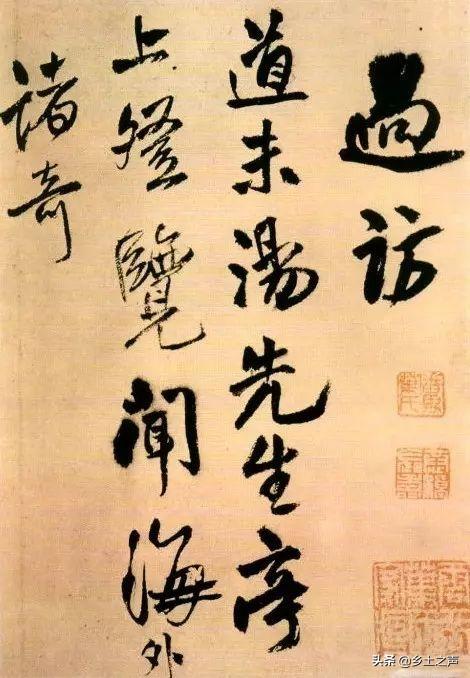 過訪
道未湯先生亭
上登覽聞海外
諸奇
头条 @乡土之声